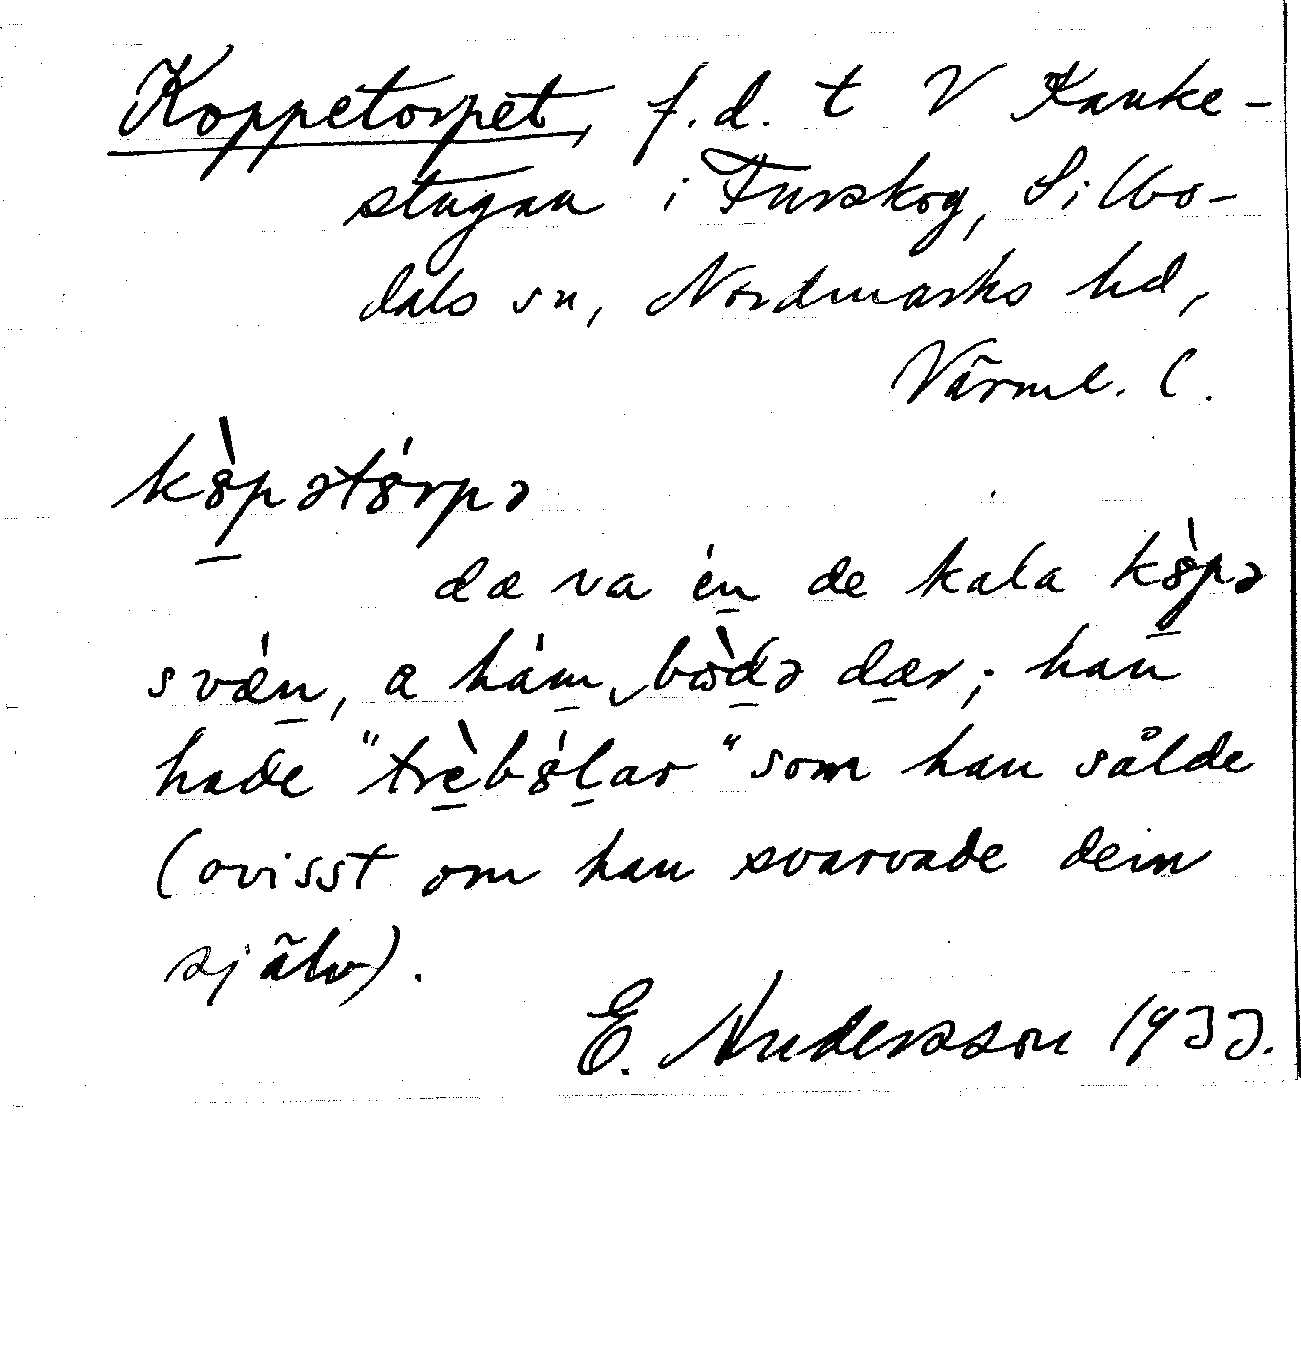 Koppetorpet, f.d. t V Kanke-
stugan i Furskog, Silbo-
dals sn, Nordmarks hd,
Värml. l.
kòpətórpə
dæ va én de kala kòpə
svǽn, a hám bòdə dær; han
hade "trèbólar" som han sålde
(ovisst om han svarvade dem
själv).
E. Andersson 1933.